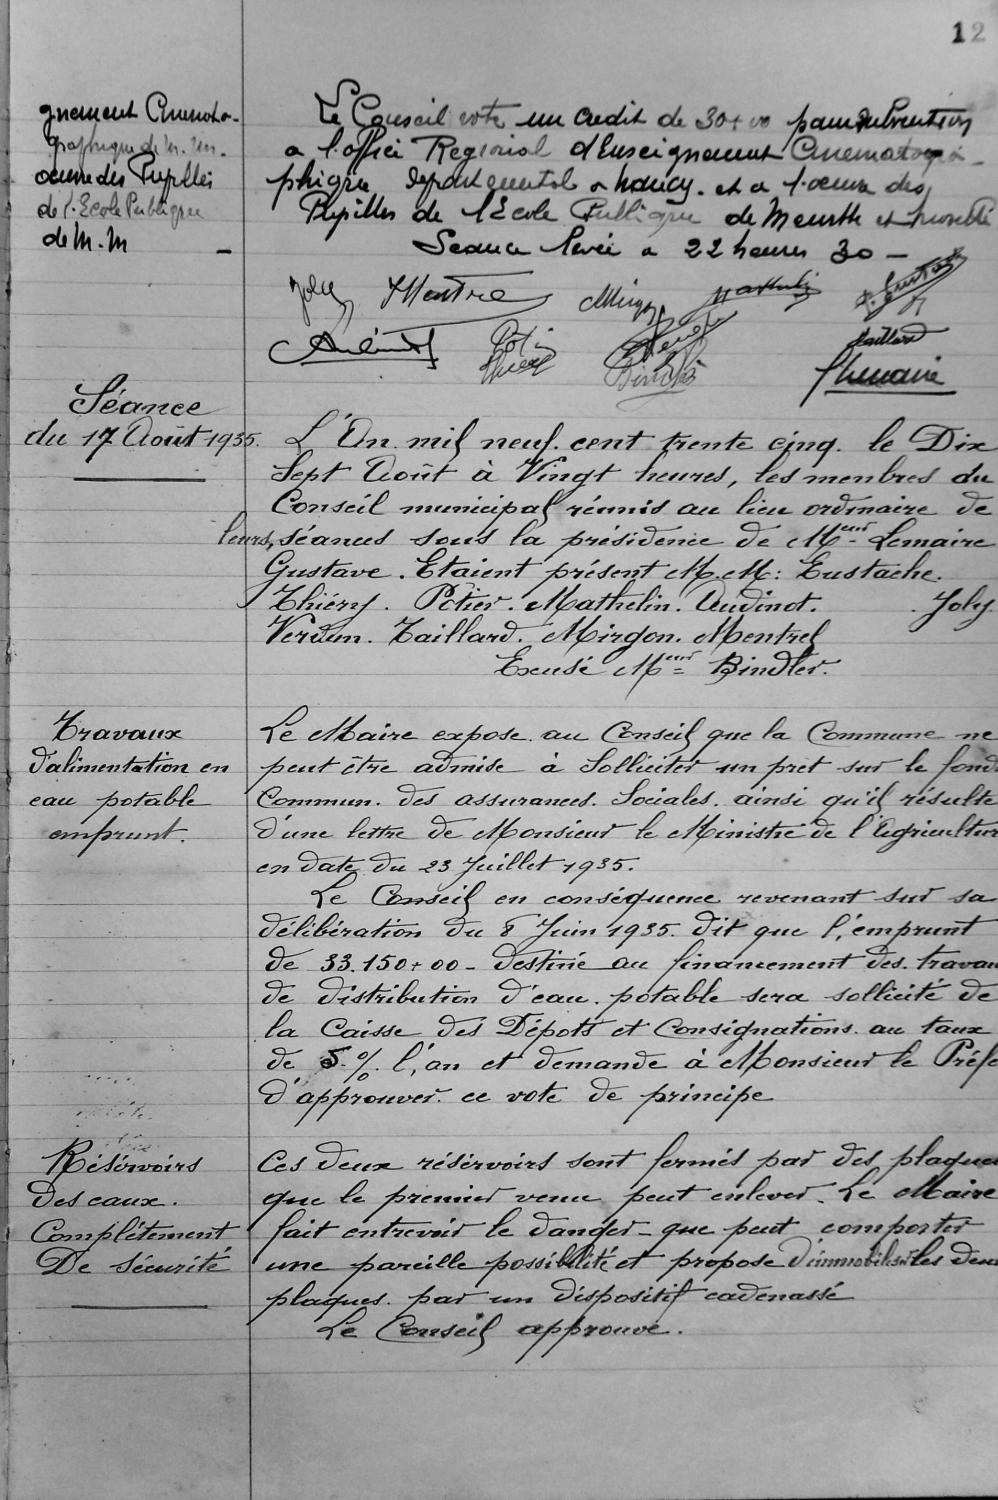 12
gnement Cinemato-
graphique de M. M.
oeuvre des Pupilles
de l'Ecole Publique
de M. M —
Le Conseil vote un credit de 30+00 pour subvention
a l'office Regional d'Enseignement Cinematogra-
phique departemental a Nancy. et a l'oeuvre des
Pupilles de l'Ecole Publique de Meurthe et Moselle
Seance levée a 22 heures 30 —
Joly Mentré Mirgon Mathelin Eustache
Audinot Potier
Thiery Bindler Taillard
GLemaire
Séance
du 17 Août 1935.
L'An mil neuf. cent trente cinq. le Dix
Sept Août à Vingt heures, les menbres du
Conseil municipal réunis au lieu ordinaire de
leurs, séances sous la présidence de Meur Lemaire
Gustave. Etaient présent M.M: Eustache.
Thiéry. Potier. Mathelin. Audinot. Joly
Verdun. Taillard. Mirgon. Mentrel
Excusé Meur Bindler.
Travaux
d'alimentation en
eau potable
emprunt.
Le Maire expose au Conseil que la Commune ne
peut être admise à Solliciter un pret sur le fond
Commun. des assurances. Sociales. ainsi qu'il résulte
d'une lettre de Monsieur le Ministre de l'Agricultur
en date du 23 Juillet 1935.
Le Conseil en conséquence revenant sur sa
délibération du 8 Juin 1935. dit que l'emprunt
de 33.150+00 - destiné au financement des. travau
de distribution d'eau. potable sera sollicité de
la Caisse des Dépots et Consignations. au taux
de 5.%. l'an et demande à Monsieur le Préfe
d'approuver. ce vote de principe
Résérvoirs
des eaux.
Complétement
De Sécurité
Ces deux résérvoirs sont fermés par des plaques
que le premier venu peut enlever. Le Maire
fait entrevoir le danger - que peut comporter
une pareille possibilité et propose d'immobiliser les deux
plaques. par un dispositif cadenassé
Le Conseil approuve.